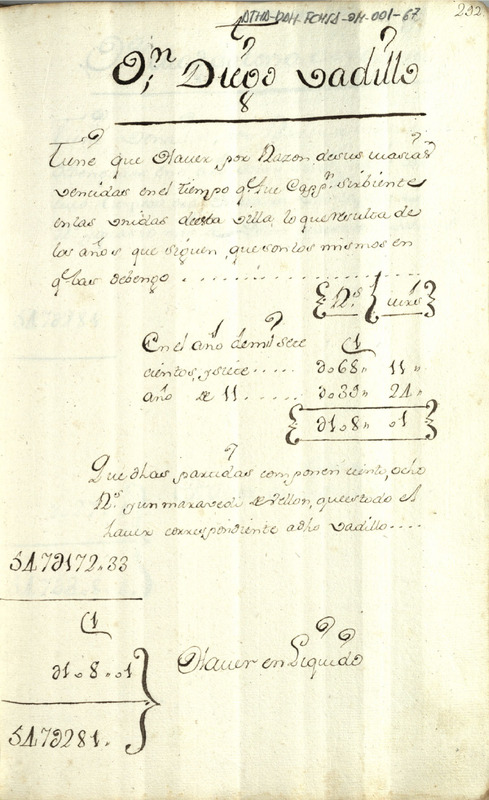 ATHA-DAH-FCHTJ-DH-001-67
292
Dn Diego Vadillo
8
Tiene que Hauer por Razon desus masias
vencidas en el tiempo qe fue Cappn sirbiente
en las unidas desta villa, lo que resulta de
los años que siguen, que son los mismos en
qe las debengo
Rs mrs
En el año de mil sete
cientos, y siete..... 068" 11"
año de 11...... 039" 24"
01.8" .01
Que dhas partidas componen ciento, ocho
Rs y un maravedi de Vellon, que es todo el
hauer correspondiente adho Vadillo....
547172"33
01.8".01
547281"
Hauer en Liquido